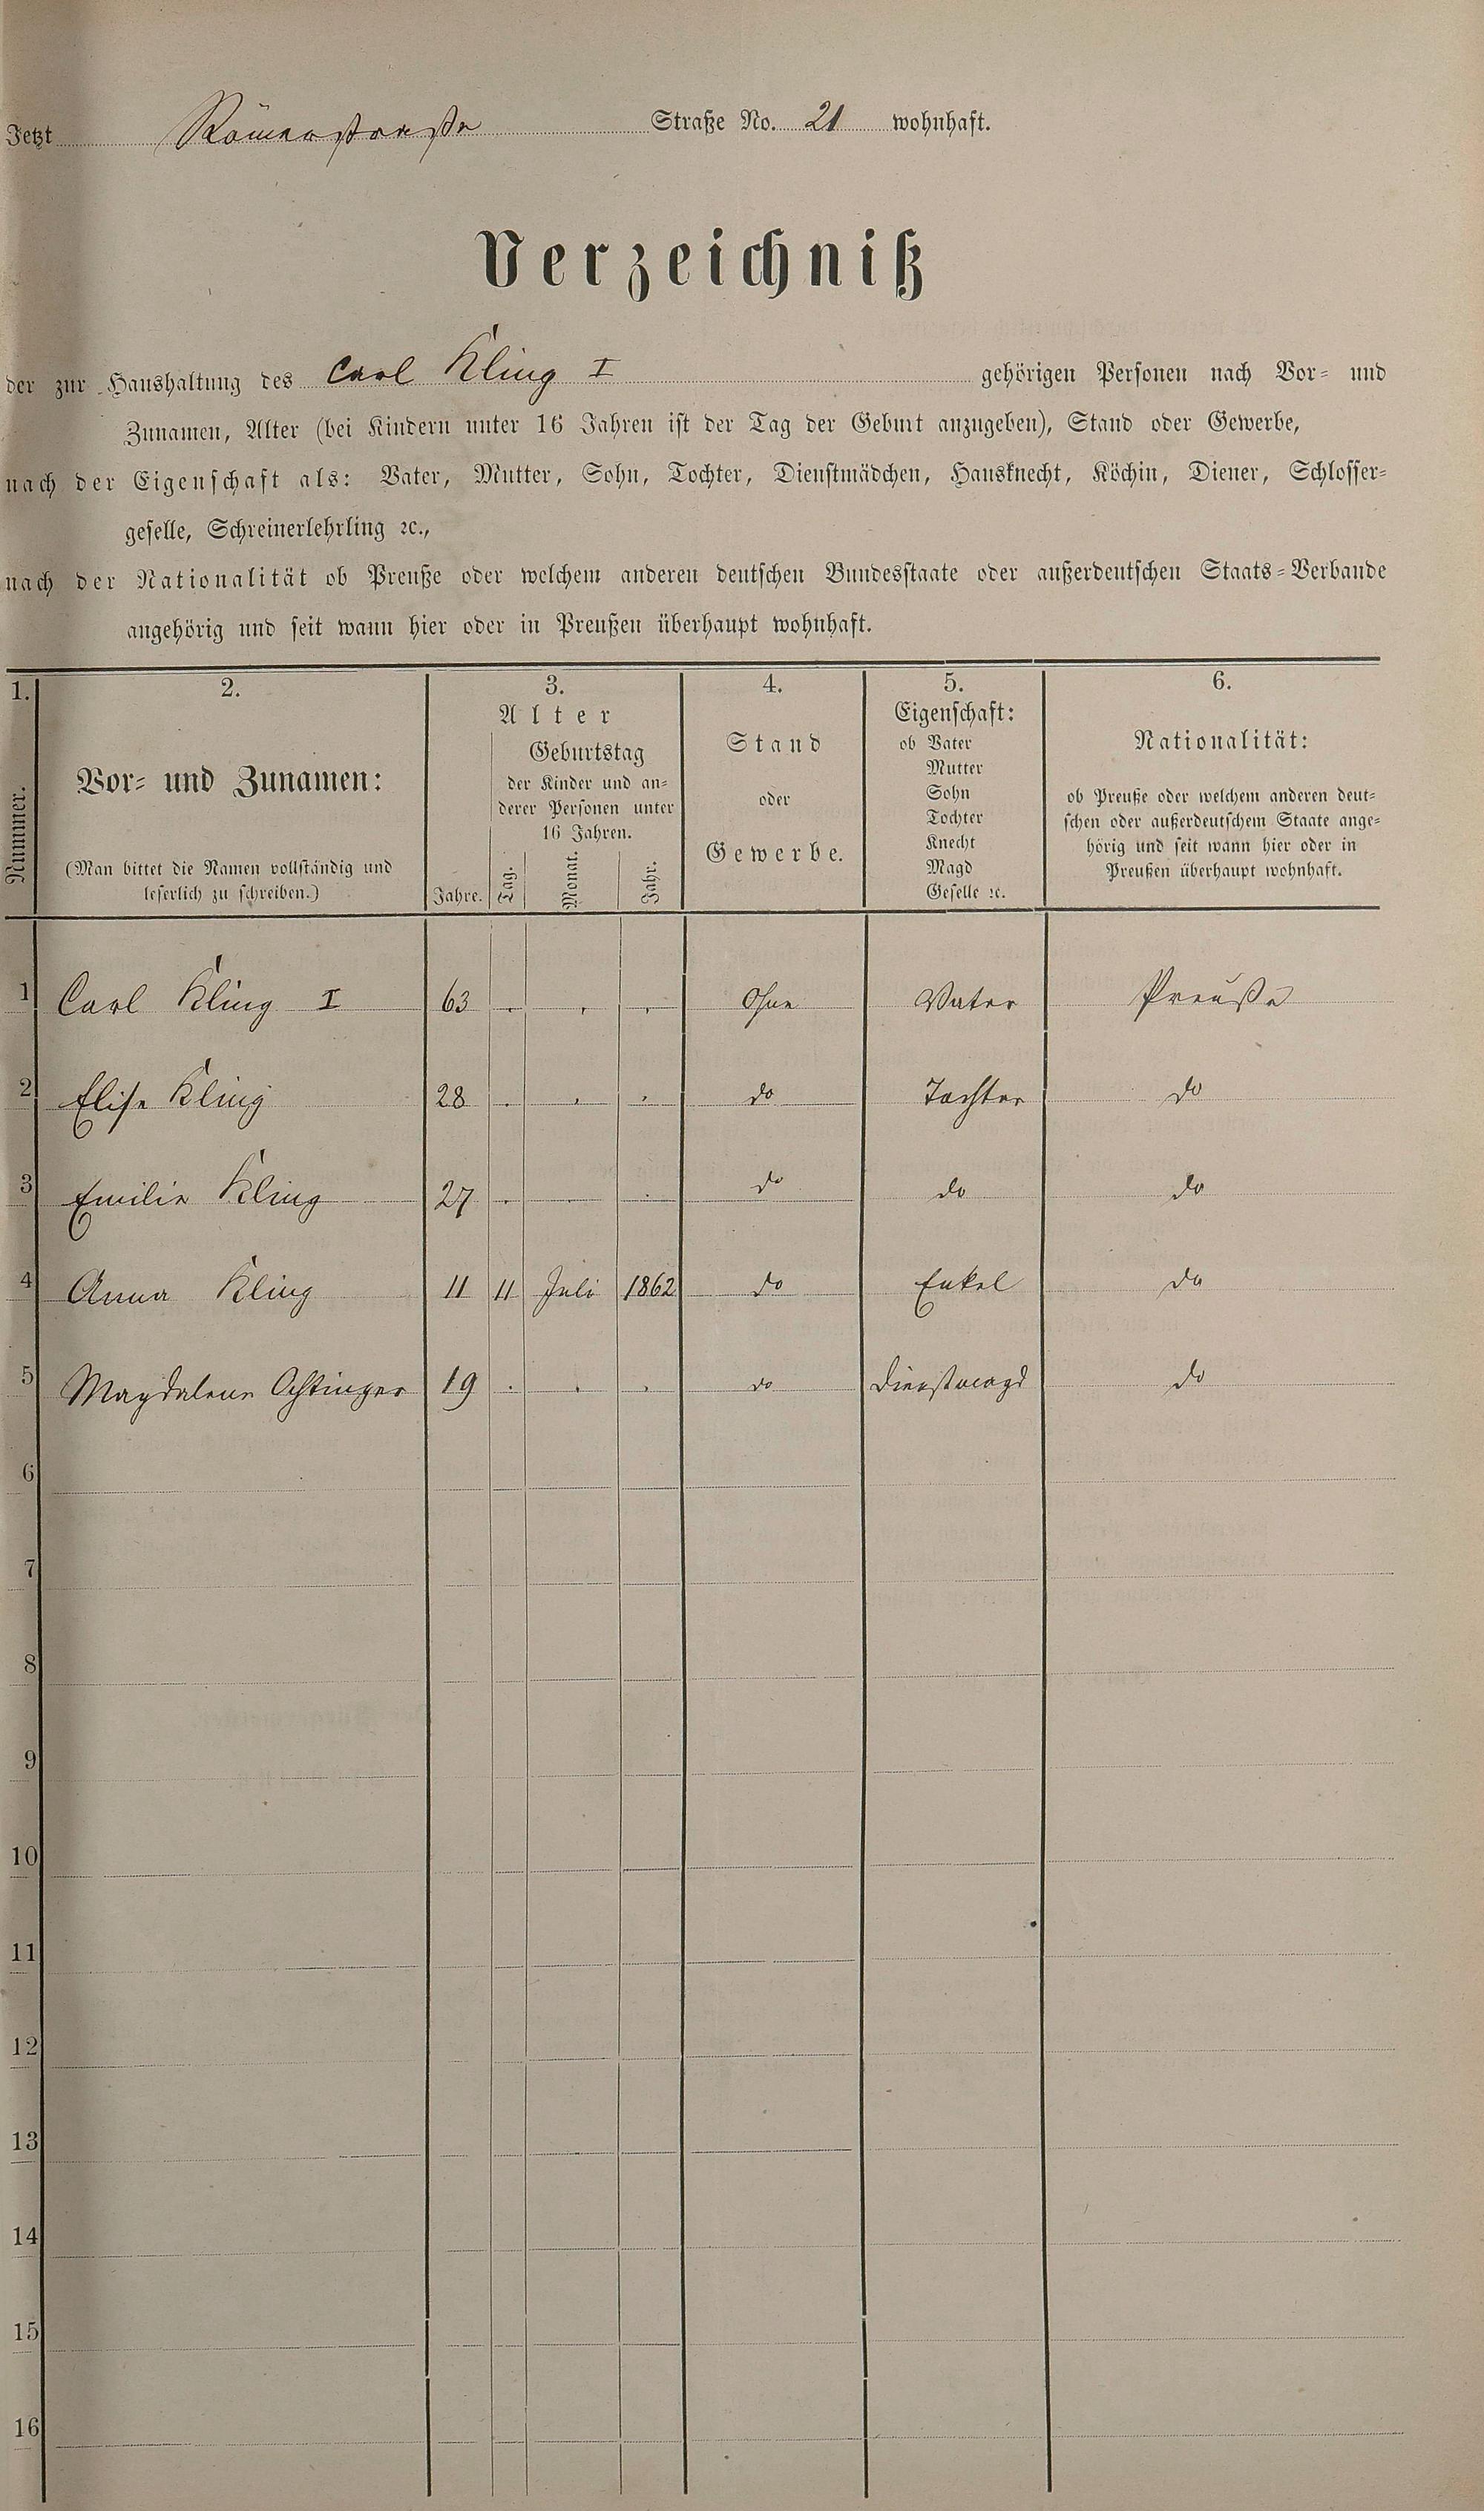 Jetzt Römerstraße Straße No. 21 wohnhaft.
Verzeichniß
der zur Haushaltung des Carl Kling I gehörigen Personen nach Vor- und
Zunamen, Alter (bei Kindern unter 16 Jahren ist der Tag der Geburt anzugeben), Stand oder Gewerbe,
nach der Eigenschaft als: Vater, Mutter, Sohn, Tochter, Dienstmädchen, Hausknecht, Köchin, Diener, Schlosser-
geselle, Schreinerlehrling ꝛc.,
nach der Nationalität ob Preuße oder welchem anderen deutschen Bundesstaate oder außerdeutschen Staats-Verbande
angehörig und seit wann hier oder in Preußen überhaupt wohnhaft.
1. 2. 3. 4. 5. 6.
Nummer.
Vor- und Zunamen:
(Man bittet die Namen vollständig und
leserlich zu schreiben.)
Alter
Jahre.
Geburtstag
der Kinder und an-
derer Personen unter
16 Jahren.
Tag. Monat. Jahr.
Stand
oder
Gewerbe.
Eigenschaft:
ob Vater
Mutter
Sohn
Tochter
Knecht
Magd
Geselle ꝛc.
Nationalität:
ob Preuße oder welchem anderen deut-
schen oder außerdeutschem Staate ange-
hörig und seit wann hier oder in
Preußen überhaupt wohnhaft.
1 Carl Kling I 63 . . . Ohne Vater Preuße
2 Elise Kling 28 . . . do Tochter do
3 Emilie Kling 27 . . . do do do
4 Anna Kling 11 11 Juli 1862 do Enkel do
5 Magdalene Achtinger 19 . . . do Dienstmagd do
6
7
8
9
10
11
12
13
14
15
16